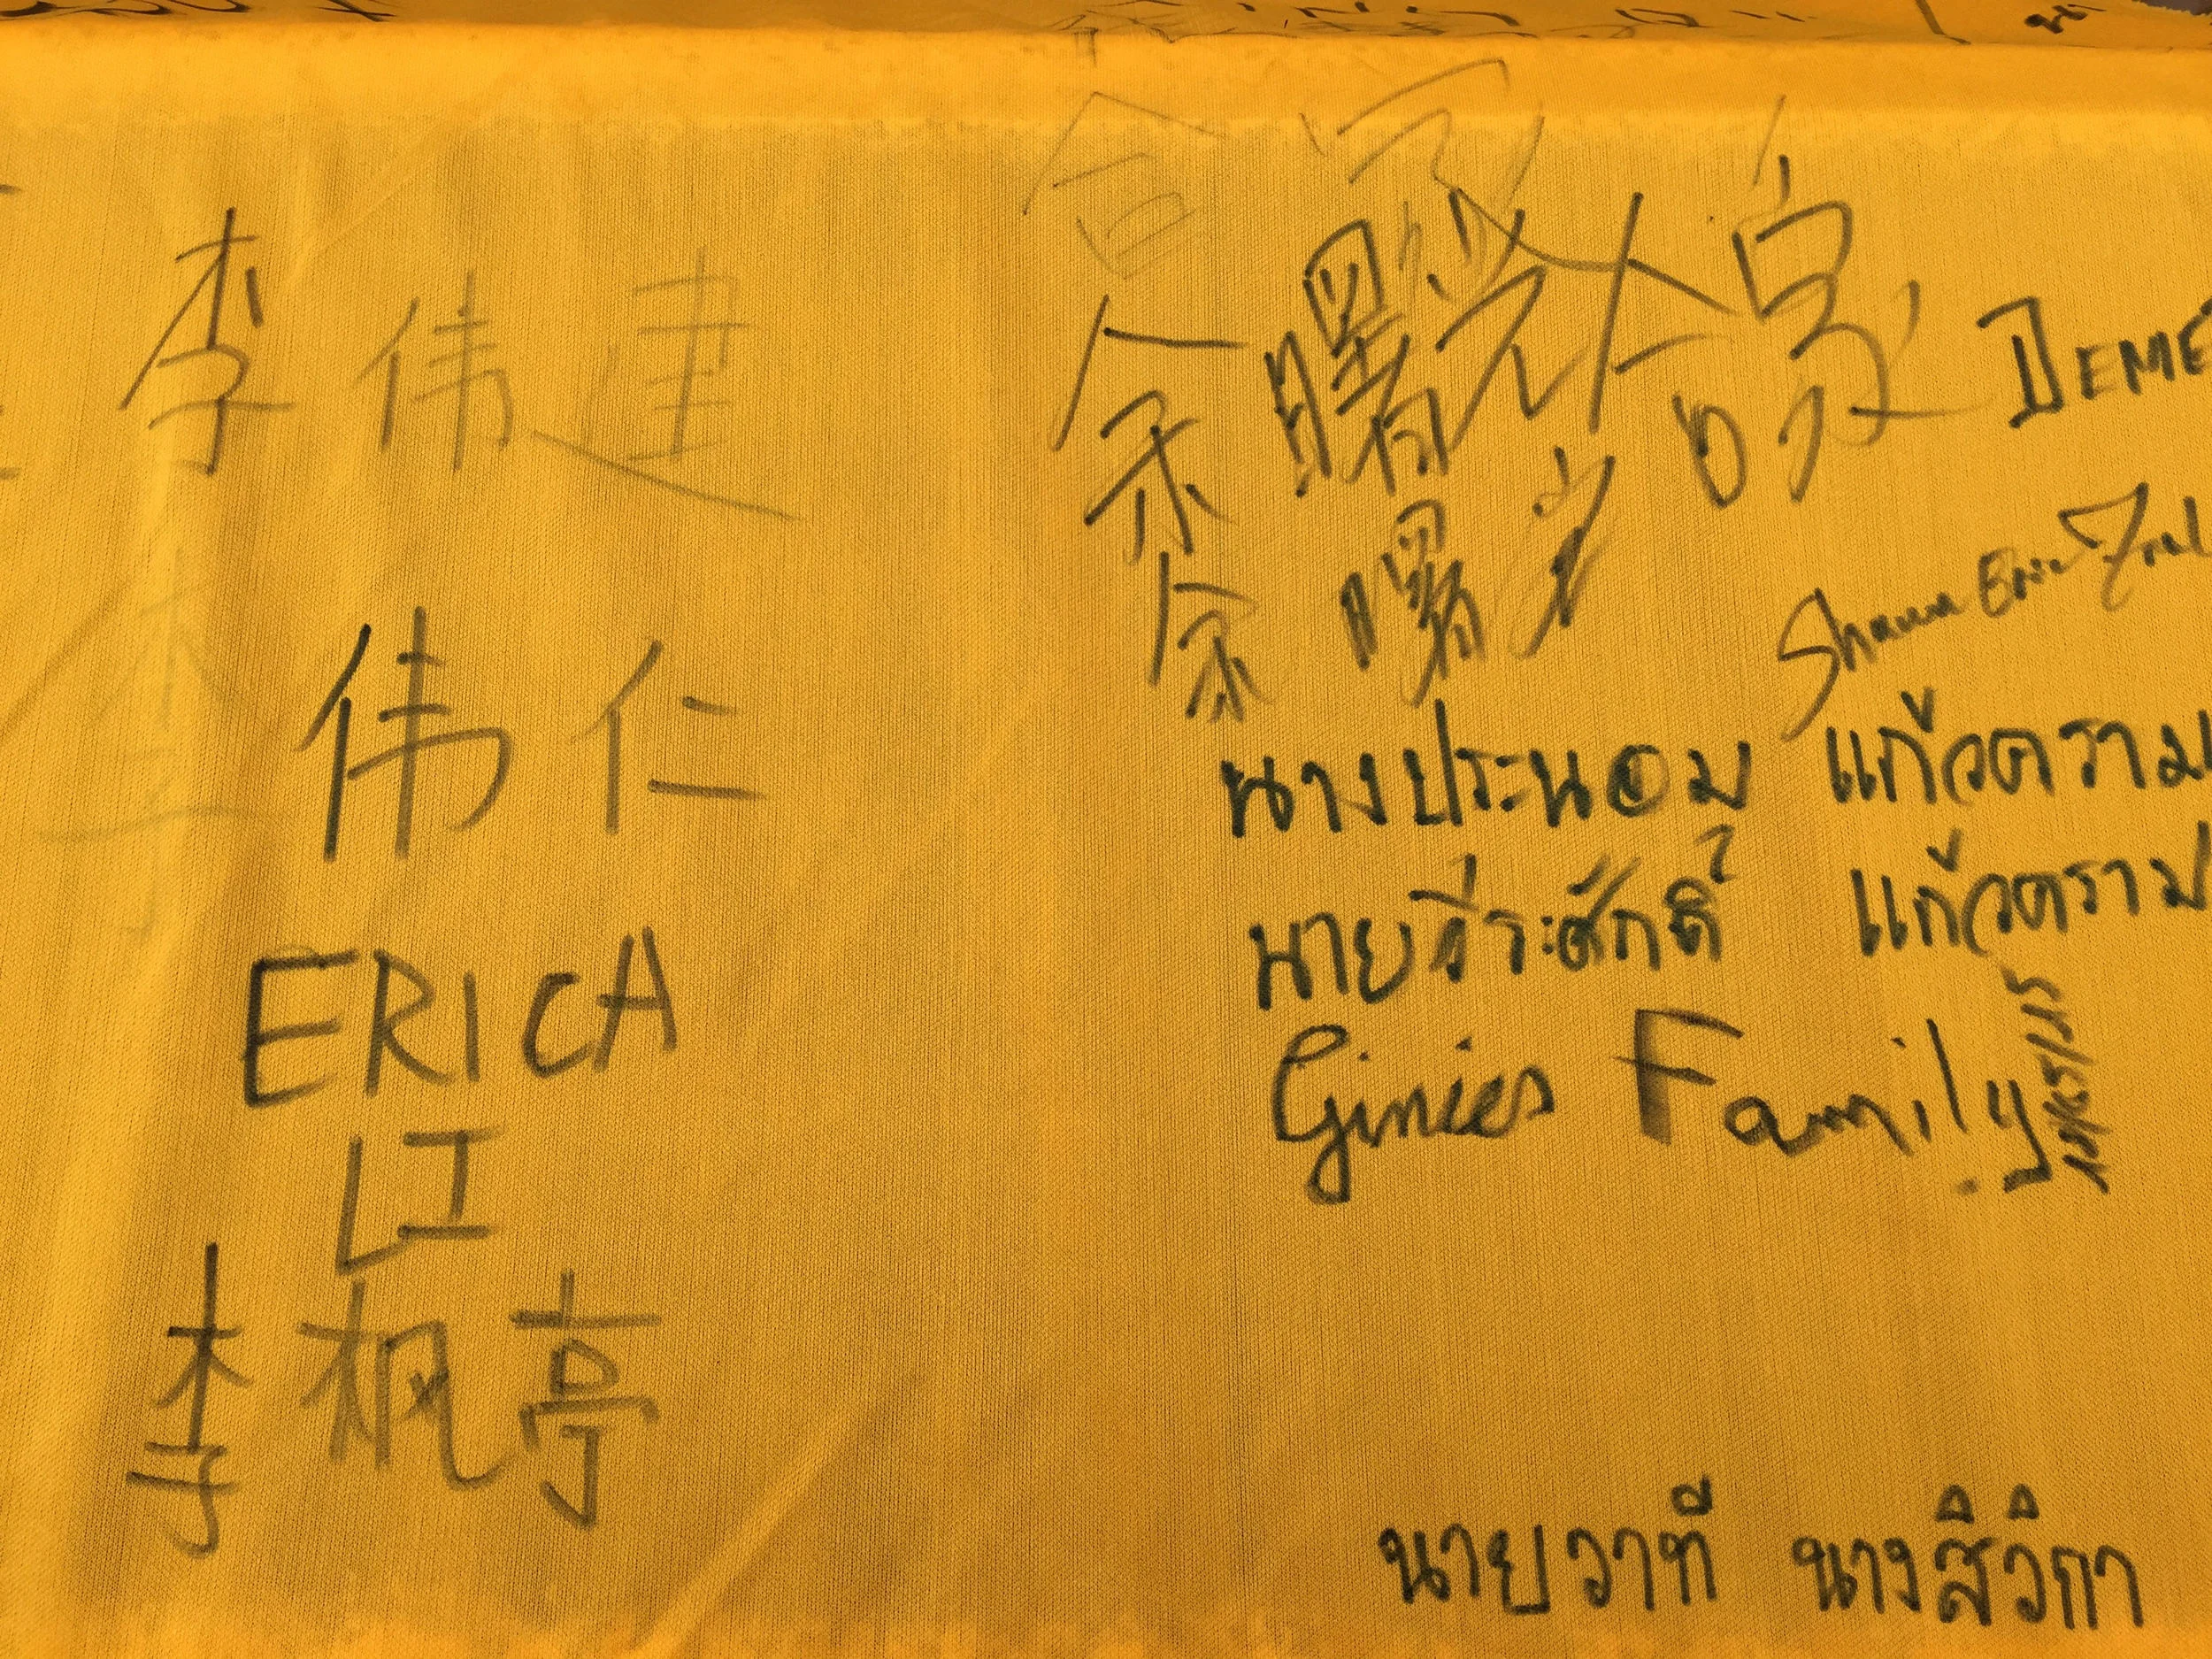 李 伟 建
伟 仁
ERICA
LI
李 枫 亭
合家
余曙光 合家
余曙光
DEME
นางประนอม แก้วคราม
นายวีระศักดิ์ แก้วคราม
Ginies Family
นายวาที นางสิวิกา